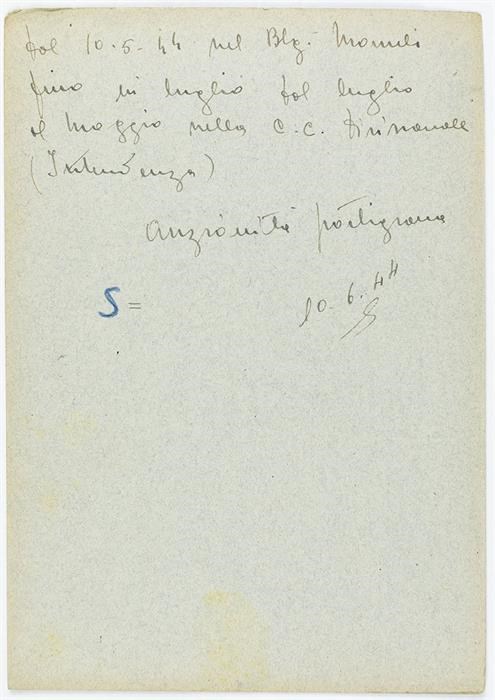 dal 10-5-44 nel Btg. Mameli
fino in luglio dal luglio
al Maggio nella C.C. Divisionale
(Intendenza)
Anzianità partigiana
10-6-44
S=